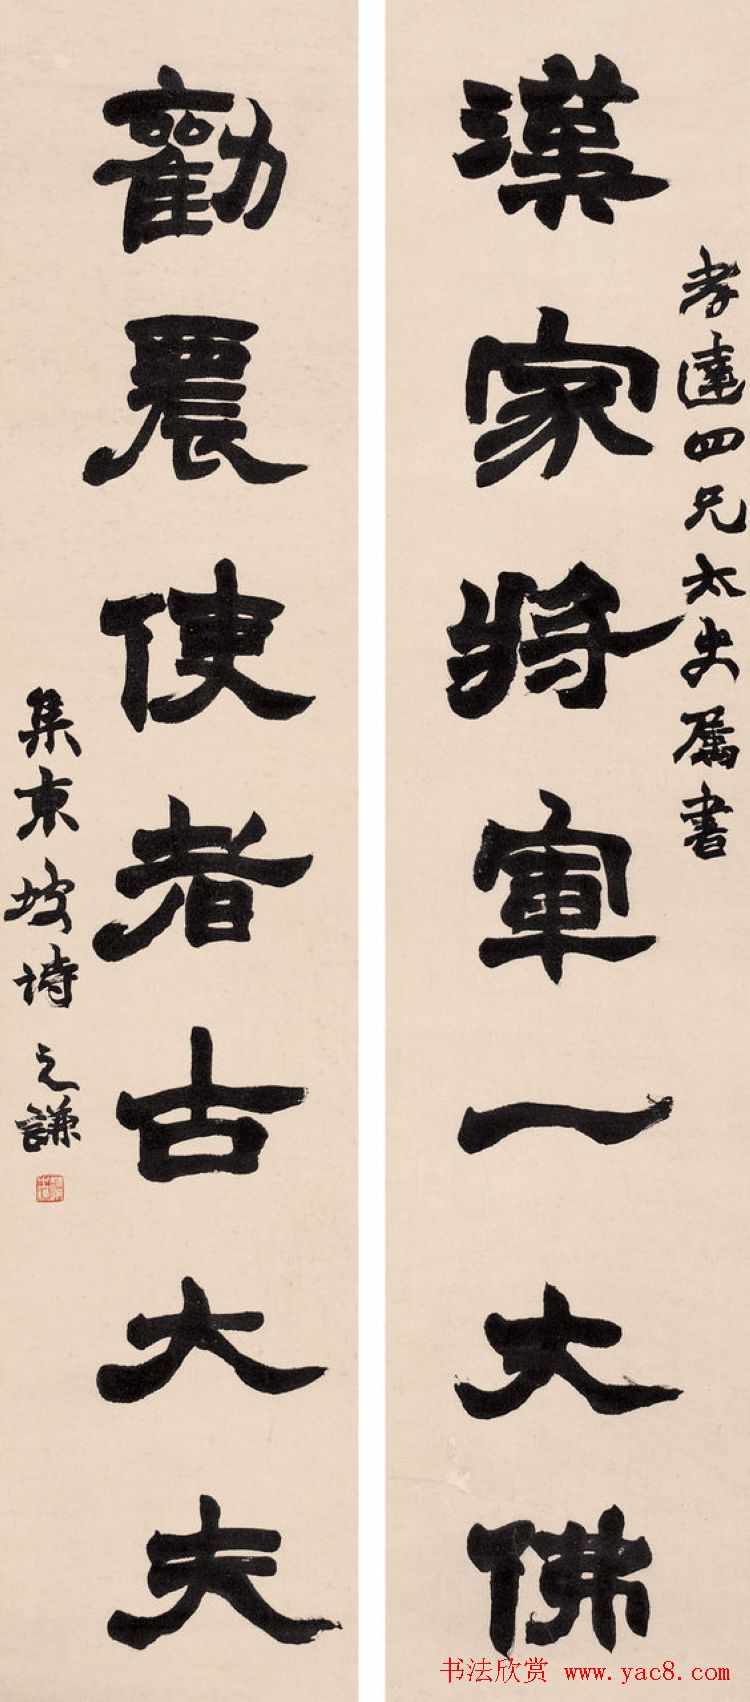 孝達四兄太史属書
漢家將軍一大佛
勸農使者古大夫
集東坡詩 之謙
书法欣赏 www.yac8.com